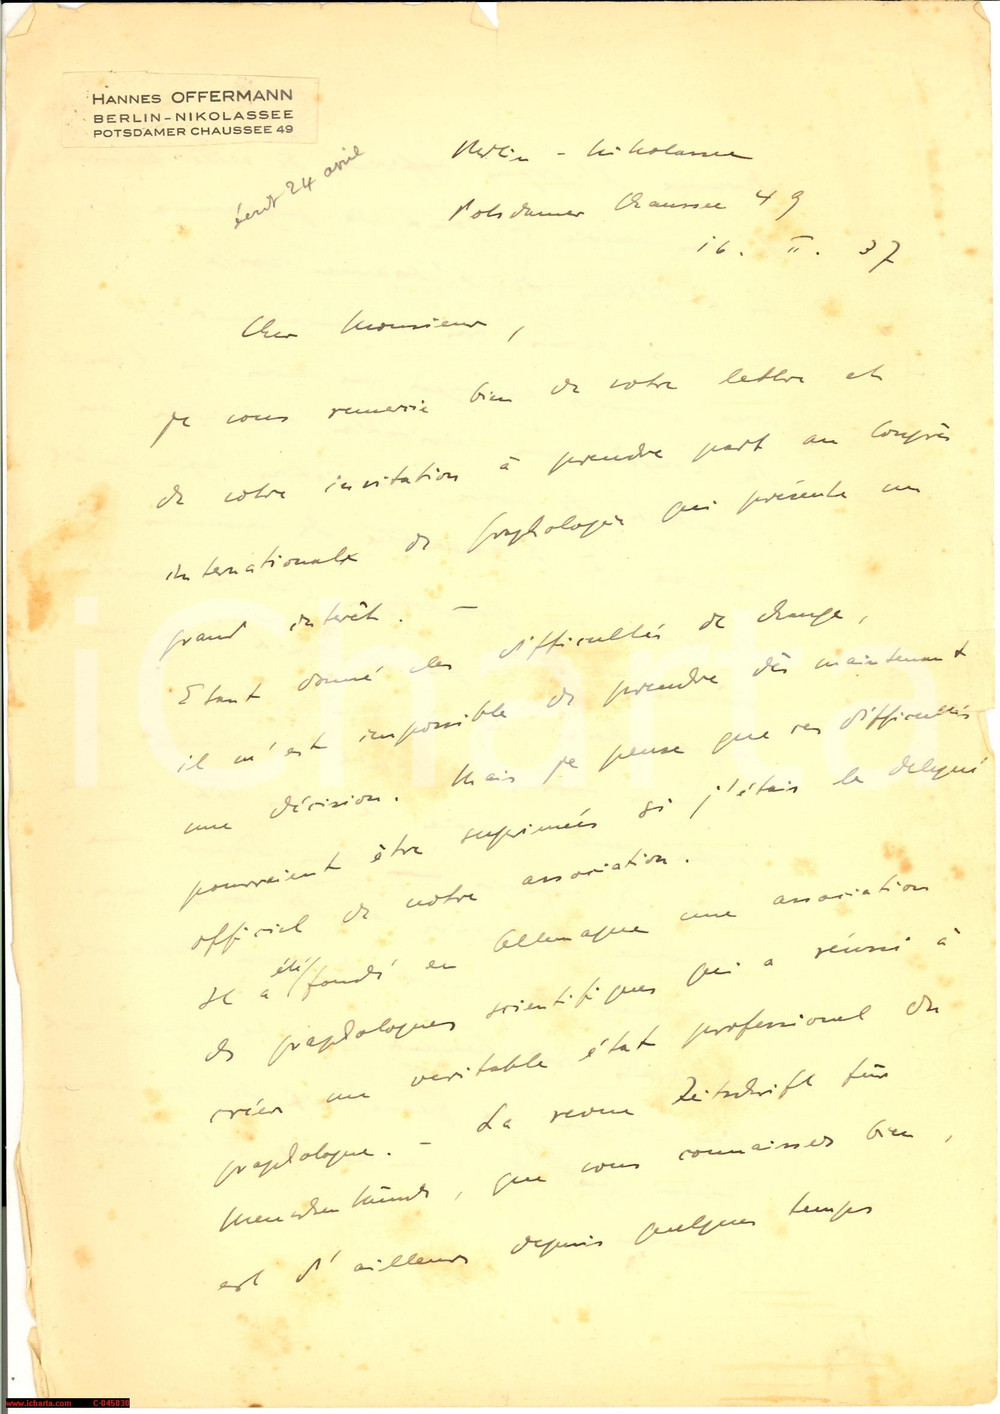 HANNES OFFERMANN
BERLIN-NIKOLASSEE
POTSDAMER CHAUSSEE 49
écrit 24 avril
Berlin - Nikolassee
Potsdamer Chaussee 49
16. II. 37
Cher Monsieur,
je vous remercie bien de votre lettre et
de votre invitation à prendre part au Congrès
internationale de Graphologie qui présente un
grand intérêt. —
Etant donné les difficultés de change,
il m'est impossible de prendre dès maintenant
une décision. Mais je pense que ces difficultés
pourraient être suprimées si j'étais le delegué
officiel de notre association.
Il a été fondé en Allemagne une association
de graphologues scientifiques qui a réussi à
créer un veritable état professionel du
graphologue. — La revue Zeitschrift für
Menschenkunde, que vous connaissez bien,
est d'ailleurs depuis quelques temps
iCharta
www.icharta.com C-045030